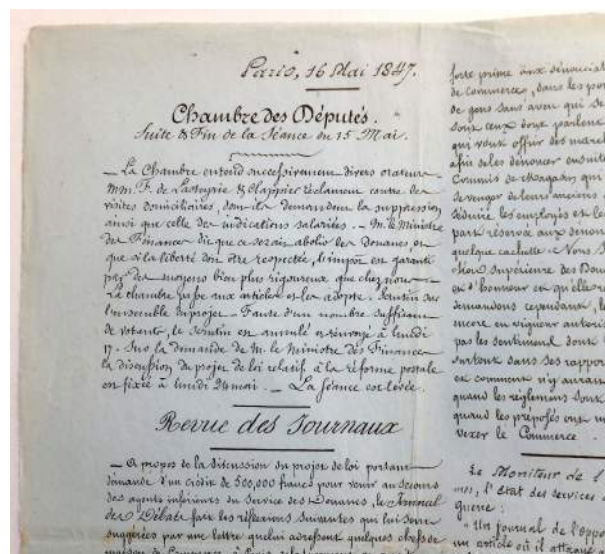 Paris, 16 Mai 1847.
Chambre des Députés.
Suite & Fin de la Séance du 15 Mai.
— La Chambre entend successivement divers orateurs
MM. F. de Lasteyrie & Clappier réclament contre des
visites domiciliaires, dont ils demandent la suppression
ainsi que celle des indications salariées. — M. le Ministre
des Finances dit que ce serait abolir les Douanes, et
que si la liberté doit être respectée, l'impôt est garanti
par des moyens bien plus rigoureux que chez nous —
La chambre passe aux articles et les adopte. Scrutin sur
l'ensemble du projet — Faute d'un nombre suffisant
de votants, le scrutin est annulé et renvoyé à lundi
17. Sur la demande de M. le Ministre des Finances
la discussion du projet de loi relatif à la réforme postale
est fixée à lundi 24 mai. — La séance est levée.
Revue des Journaux
— A propos de la discussion du projet de loi portant
demande d'un crédit de 500,000 francs pour venir au secours
des agents inférieurs du service des Douanes, le Journal
des Débats fait les réflexions suivantes qui lui sont
suggérées par une lettre que lui adressent quelques chefs de
maison de Commerce à Paris
forte prime aux dénonciat
de commerce, dans les por
de gens sans aveu qui se
sont ceux dont parlent
qui vont offrir des march
afin de les dénoncer ensuite
Commis de Magasin qui
se venger de leurs anciens
séduire les employés et les
part réservée aux dénon
quelque cachette. Nous
supérieure des Dou
en d'honneur en qu'elle
demandons cependant, l
encore en vigueur autoris
pas les sentiments dont
surtout dans ses rappor
et comment n'y aurait
quand les règlements sont
quand les préposés ont
vexer le Commerce.
Le Moniteur de l'
l'état des services
guerre :
"Un journal de l'oppo
un article où il attaque